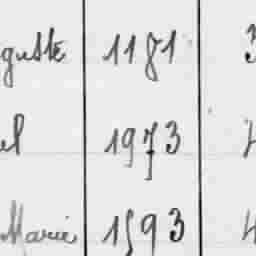 guste 1181 3
el 1973
Marie 1593 4